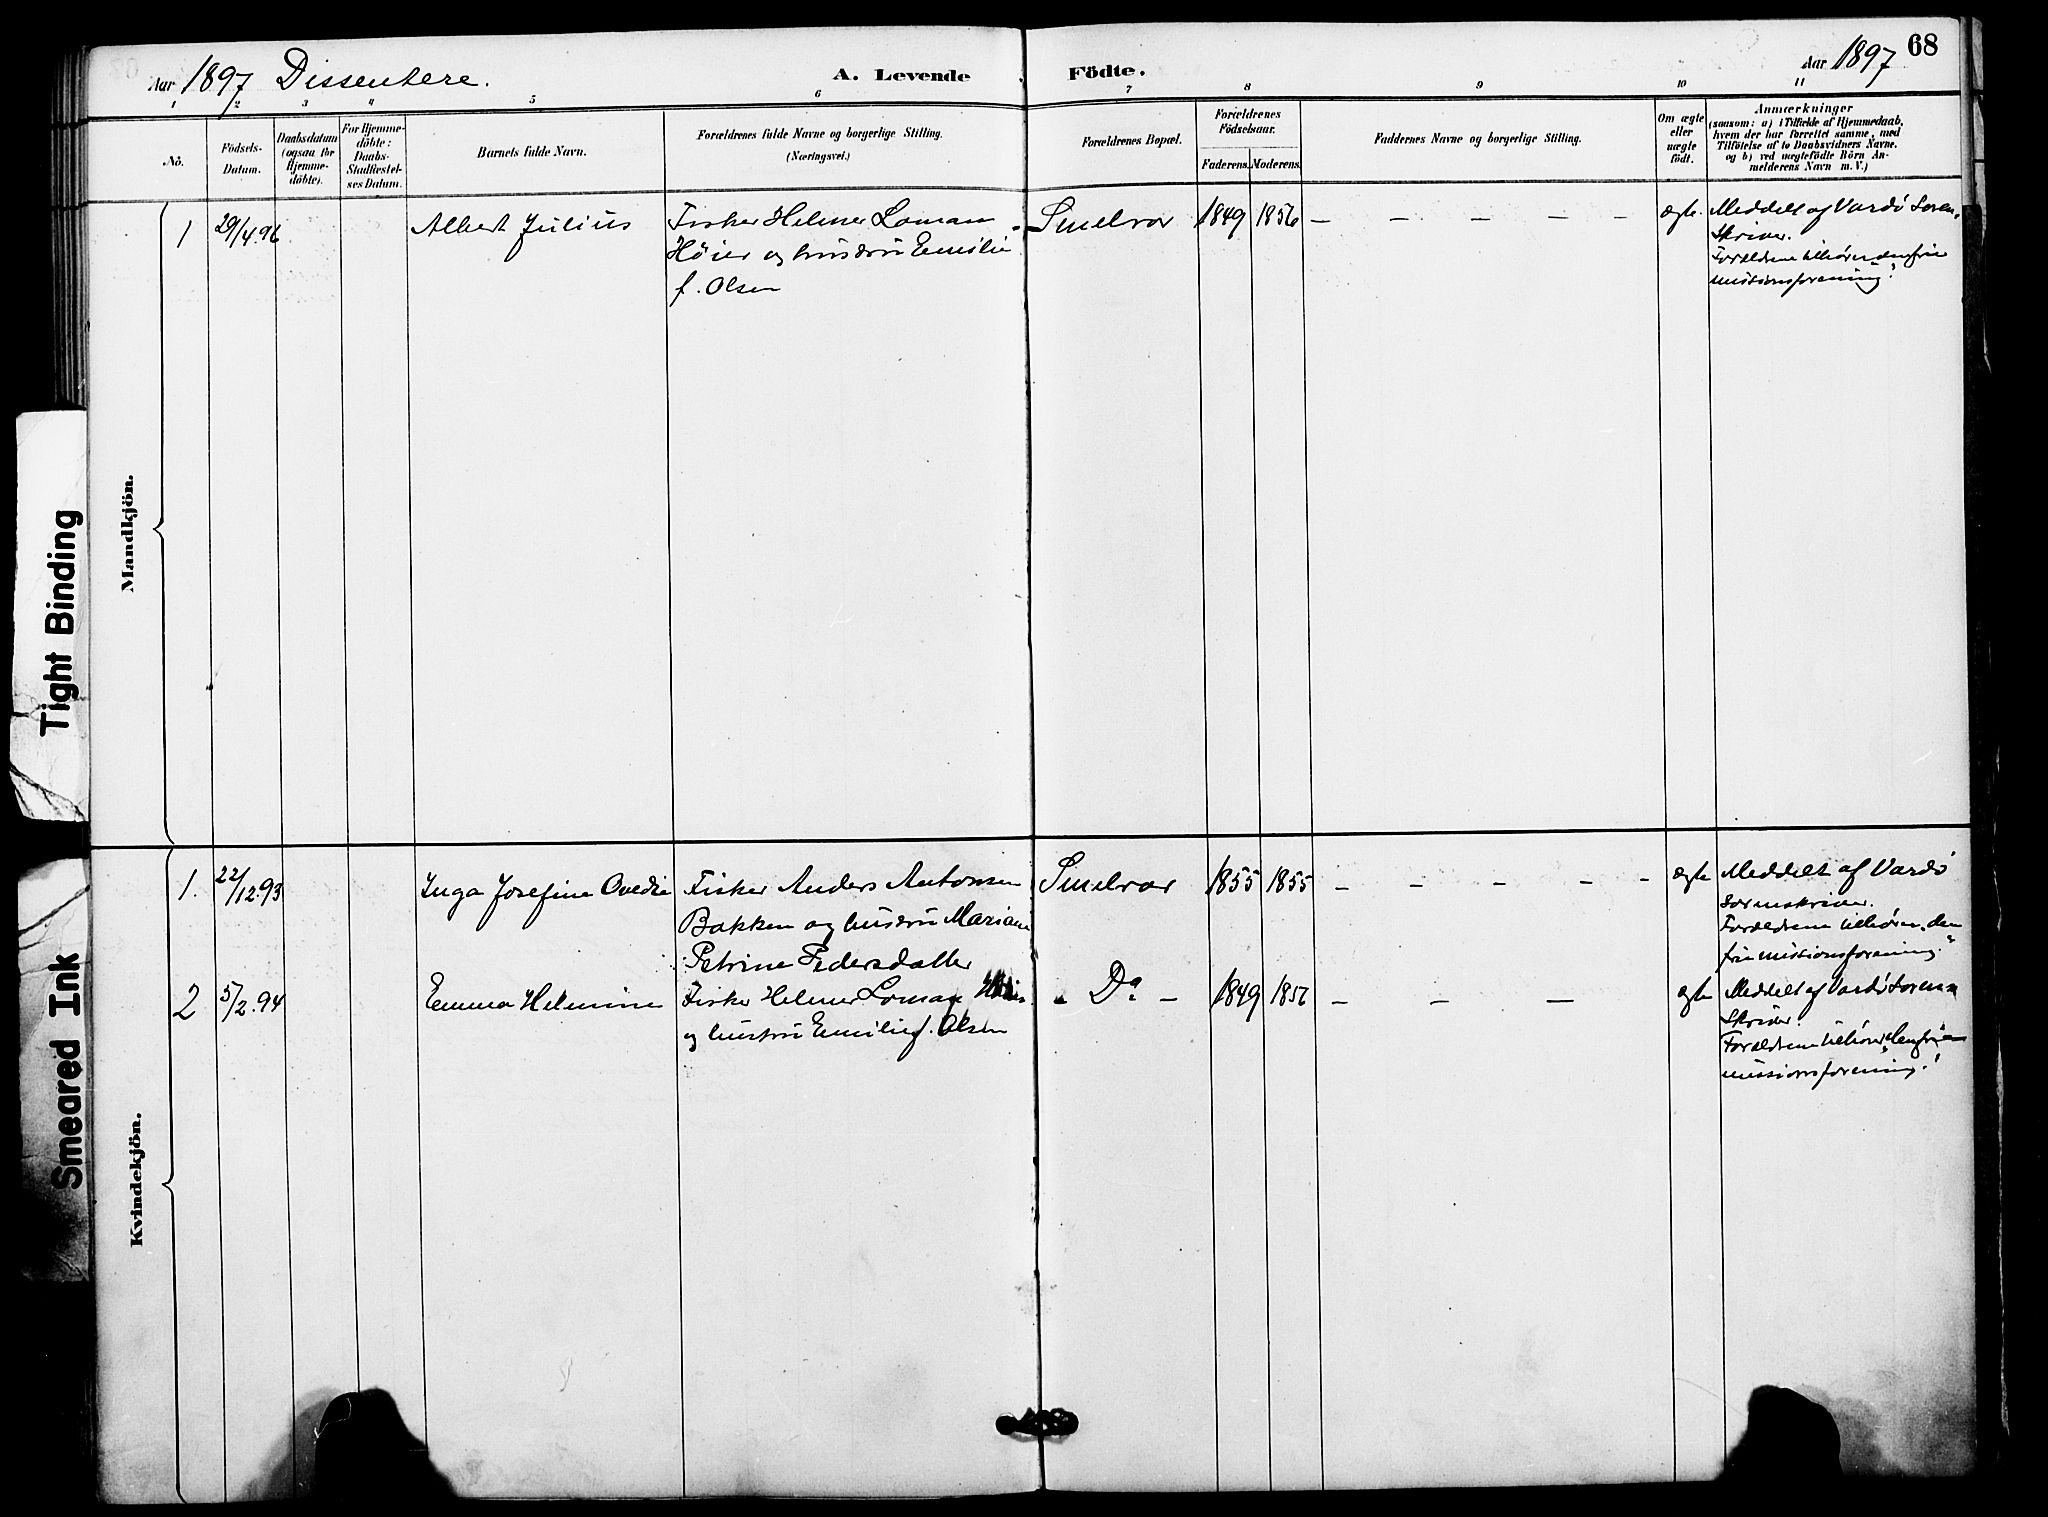 Aar 1897 Dissentere.
A. Levende Födte.
Aar 1897
68
1 2 3 4 5 6 7 8 9 10 11
No.
Födsels-
Datum.
Daabsdatum
(ogsaa for
Hjemme-
döbte).
For Hjemme-
döbte:
Daabs-
Stadfæstel-
ses Datum.
Barnets fulde Navn.
Forældrenes fulde Navne og borgerlige Stilling.
(Næringsvei.)
Forældrenes Bopæl.
Forældrenes
Födselsaar.
Faderens. Moderens.
Faddernes Navne og borgerlige Stilling.
Om ægte
eller
uægte
födt.
Anmærkninger
(saasom: a) i Tilfælde af Hjemmedaab,
hvem der har forrettet samme, med
Tilföielse af to Daabsvidners Navne.
og b) ved uægtefödte Börn An-
melderens Navn m. V.)
Mandkjön.
1
29/4.96
Albert Julius
Fisker Helmer Loman
Höier og hustru Emilie
f. Olsen
Smelror
1849
1856
— — — — —
ægte.
Meddelt af Vardö Soren-
skriver.
Forældrene tilhører "den frie
missionsforening".
Kvindekjön.
1.
22/12.93
Inga Josefine Ovedie
Fisker Anders Antonsen
Bakken og hustru Mariane
Petrine Pedersdatter
Smelror
1855
1855
— — — — —
ægte
Meddelt af Vardö
Sorenskriver.
Forældrene tilhører "den
frie missionsforening."
2
5/2.94
Emma Helmine
Fisker Helmer Loman
og hustru Emilie f. Olsen
- Do -
1849
1856
— — —
ægte
Meddelt af Vardö Soren
skriver.
Forældrene tilhører "den frie
missionsforening."
Tight Binding
Smeared Ink